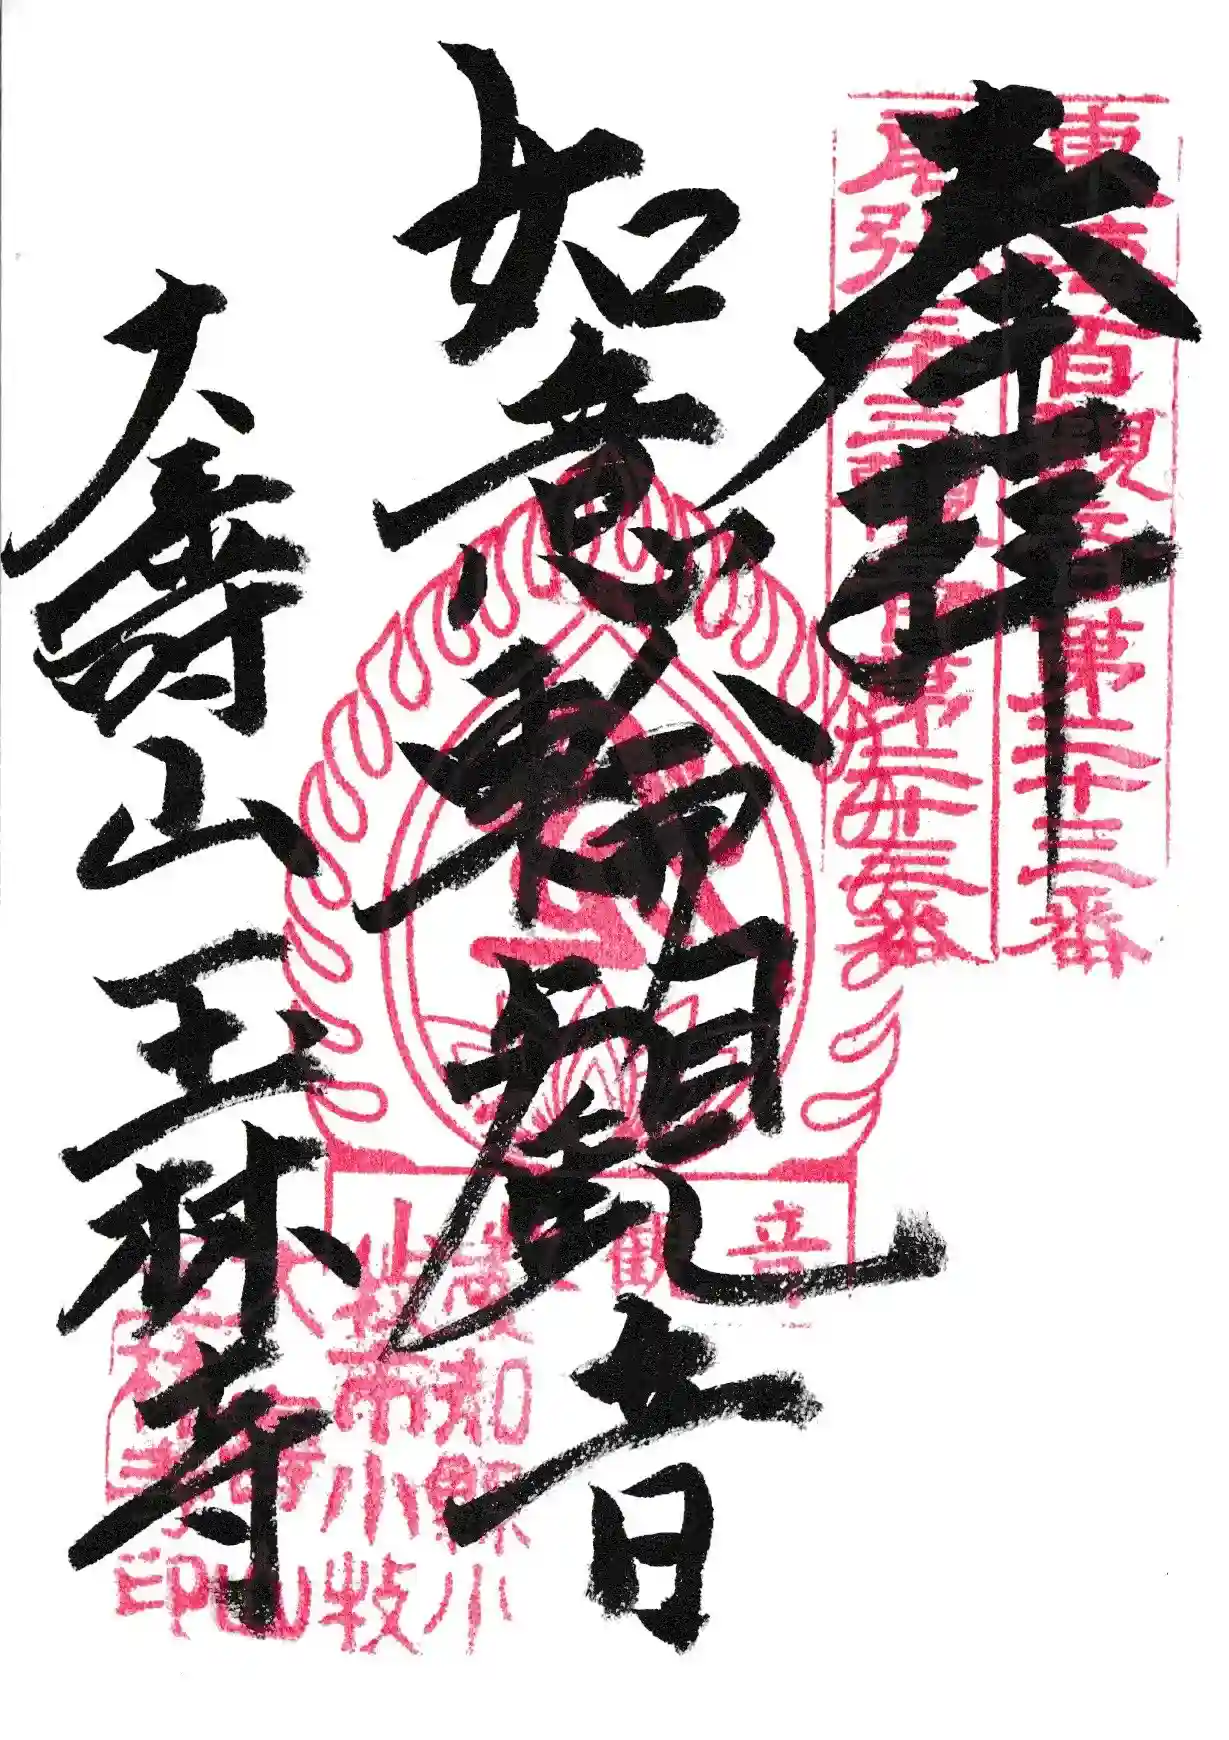 奉拝
東海百観音第二十三番
尾張三十三観音第二十三番
如意輪觀音
観音
大壽山玉林寺
愛知縣小
牧市小牧
大壽山
玉林寺印